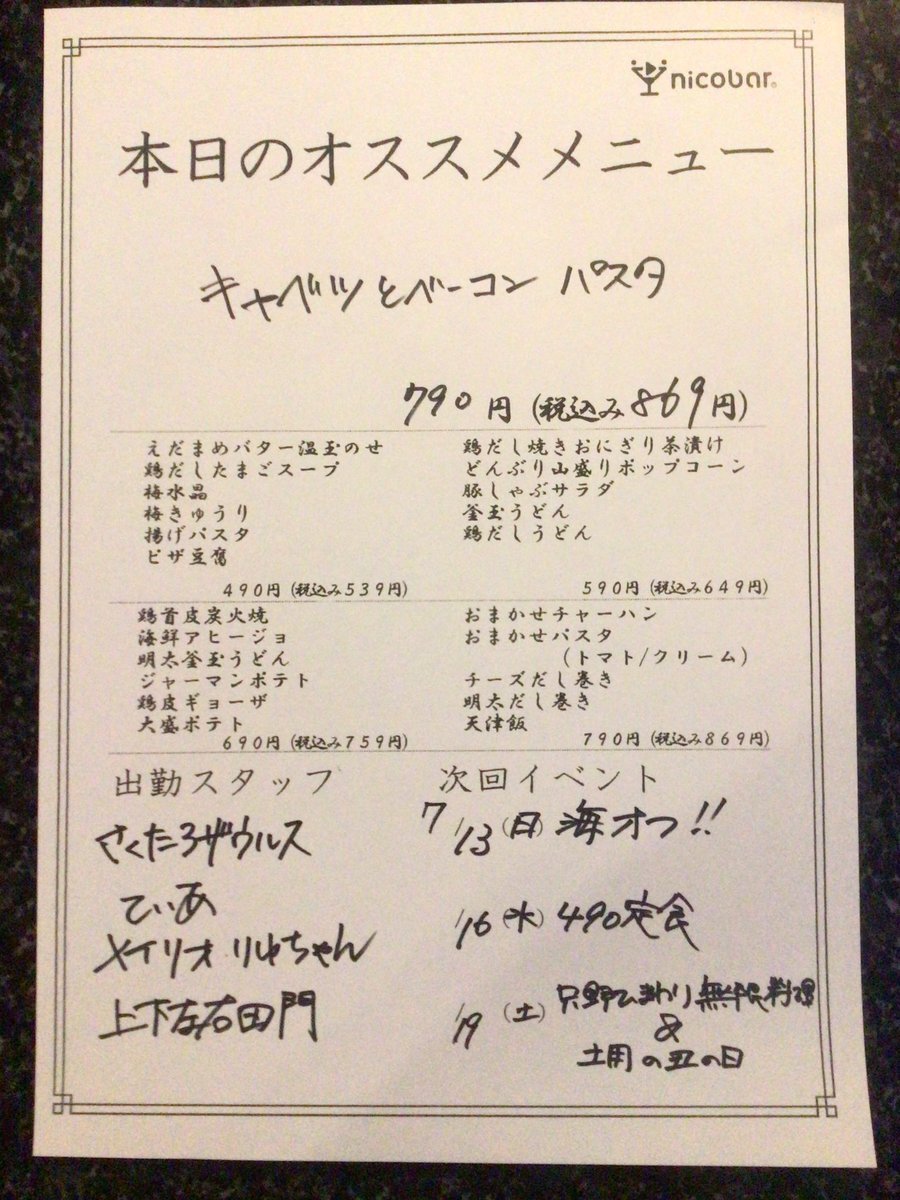 nicobar
本日のオススメメニュー
キャベツとベーコン パスタ
790円 (税込み869円)
えだまめバター温玉のせ
鶏だしたまごスープ
梅水晶
梅きゅうり
揚げパスタ
ピザ豆腐
490円 (税込み539円)
鶏だし焼きおにぎり茶漬け
どんぶり山盛りポップコーン
豚しゃぶサラダ
釜玉うどん
鶏だしうどん
590円 (税込み649円)
鶏首皮炭火焼
海鮮アヒージョ
明太釜玉うどん
ジャーマンポテト
鶏皮ギョーザ
大盛ポテト
690円 (税込み759円)
おまかせチャーハン
おまかせパスタ
(トマト/クリーム)
チーズだし巻き
明太だし巻き
天津飯
790円 (税込み869円)
出勤スタッフ
さくたろザウルス
てぃあ
メイリオ りゅちゃん
上下左右田門
次回イベント
7/13 (日) 海オフ!!
/16 (水) 490定食
/19 (土) 只野ひまわり無限料理
&
土用の丑の日